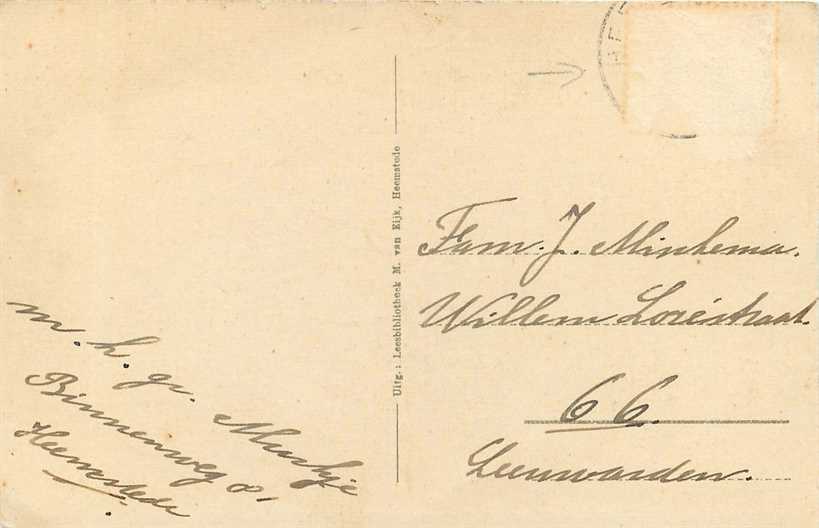 m. h. gr. Muskje
Binnenweg 81
Heemstede
Uitg.: Leesbibliotheek M. van Eijk, Heemstede
Fam. J. Minkema.
Willem Loréstraat
66.
Leeuwarden.